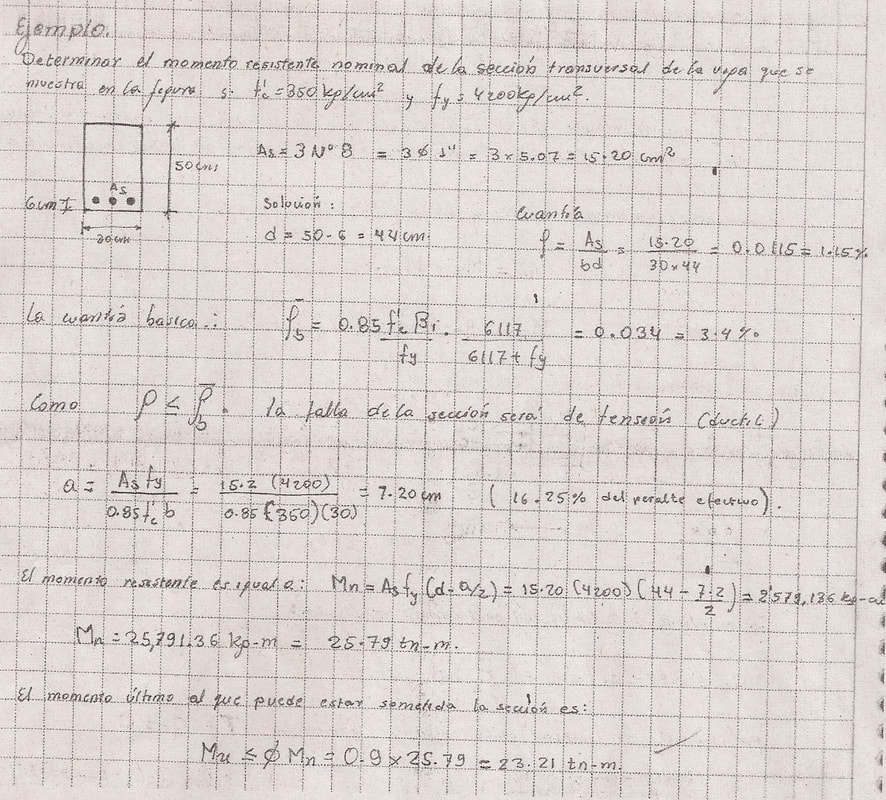 Ejemplo.
Determinar el momento resistente nominal de la sección transversal de la viga que se
muestra en la figura si f'c = 350 kg/cm² y fy = 4200 kg/cm².
As = 3 Nº 8 = 3 φ 1" = 3 x 5.07 = 15.20 cm²
50 cm
As
6 cm
30 cm
Solución:
d = 50 - 6 = 44 cm.
Cuantía
ρ = As/bd = 15.20/30x44 = 0.0115 = 1.15%
La cuantía básica.: ρb = 0.85 f'c β1/fy · 6117/6117 + fy = 0.034 = 3.4%
Como ρ ≤ ρb. la falla de la sección será de tensión (ductil)
a = As fy/0.85 f'c b = 15.2 (4200)/0.85 (350)(30) = 7.20 cm ( 16.25% del peralte efectivo).
El momento resistente es igual a: Mn = As fy (d - a/2) = 15.20 (4200) (44 - 7.2/2) = 2'579,136 kg-cm
Mn = 25,791.36 kg-m = 25.79 tn-m.
El momento último al que puede estar sometida la sección es:
Mu ≤ φ Mn = 0.9 x 25.79 = 23.21 tn-m.